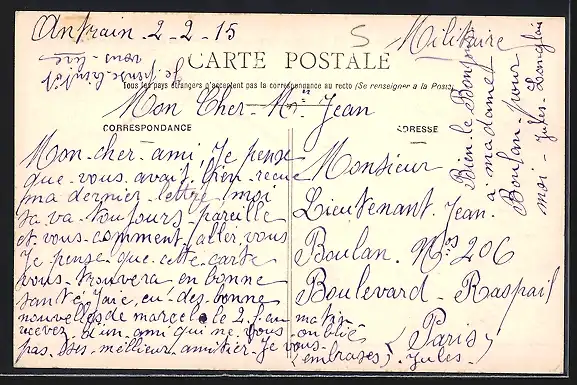 Antrain 2-2-15
Militaire
Je pense bientôt
vous lire
CARTE POSTALE
Tous les pays étrangers n'acceptent pas la correspondance au recto (Se renseigner à la Poste)
Mon Cher Mr Jean
CORRESPONDANCE
ADRESSE
Mon cher ami, Je pense
que vous avait bien recue
ma dernier lettre moi
sa va toujours pareille
et vous comment aller vous
Je pense que cette carte
vous trouvera en bonne
santé J'aie eu des bonne
nouvelles de marcel le 2 f. au matin
recevez d'un ami qui ne vous oublie
pas ses meilleur amitier Je vous
(embrases) Jules
Monsieur
Lieutenant Jean
Boulan Nos 206
Boulevard Raspail
(Paris)
Bien le Bonjour
a madame
Boulan pour
moi Jules Longlais